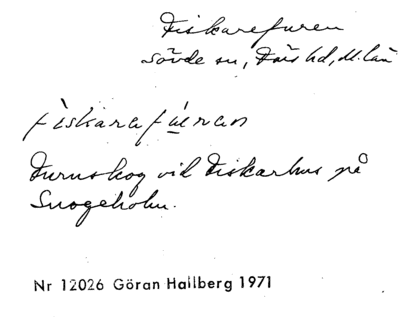 Fiskarefuren
Sövde sn, Färs hd, M. län
fiskarafu̲ran
Furuskog vid Fiskarhus på
Snogeholm.
Nr 12026 Göran Hallberg 1971